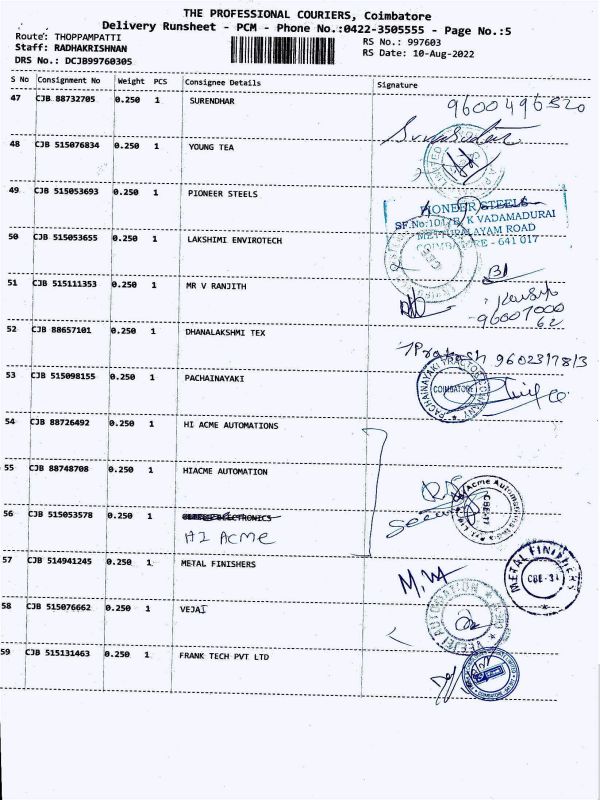 THE PROFESSIONAL COURIERS, Coimbatore
Delivery Runsheet - PCM - Phone No.:0422-3505555 - Page No.:5
Route: THOPPAMPATTI
RS No.: 997603
Staff: RADHAKRISHNAN
RS Date: 10-Aug-2022
DRS No.: DCJB99760305
S No Consignment No Weight PCS Consignee Details Signature
47 CJB 88732705 0.250 1 SURENDHAR
9600496520
48 CJB 515076834 0.250 1 YOUNG TEA
49 CJB 515053693 0.250 1 PIONEER STEELS
PIONEER STEELS
SF.No:101/B, K VADAMADURAI
METTUPALAYAM ROAD
COIMBATORE - 641 017
50 CJB 515053655 0.250 1 LAKSHIMI ENVIROTECH
51 CJB 515111353 0.250 1 MR V RANJITH
96007000
62
52 CJB 88657101 0.250 1 DHANALAKSHMI TEX
Prakash 9602317813
53 CJB 515098155 0.250 1 PACHAINAYAKI
COIMBATORE
54 CJB 88726492 0.250 1 HI ACME AUTOMATIONS
55 CJB 88748708 0.250 1 HIACME AUTOMATION
56 CJB 515053578 0.250 1
HI ACME
CBE-17
57 CJB 514941245 0.250 1 METAL FINISHERS
METAL FINISHERS
CBE-31
58 CJB 515076662 0.250 1 VEJAI
59 CJB 515131463 0.250 1 FRANK TECH PVT LTD